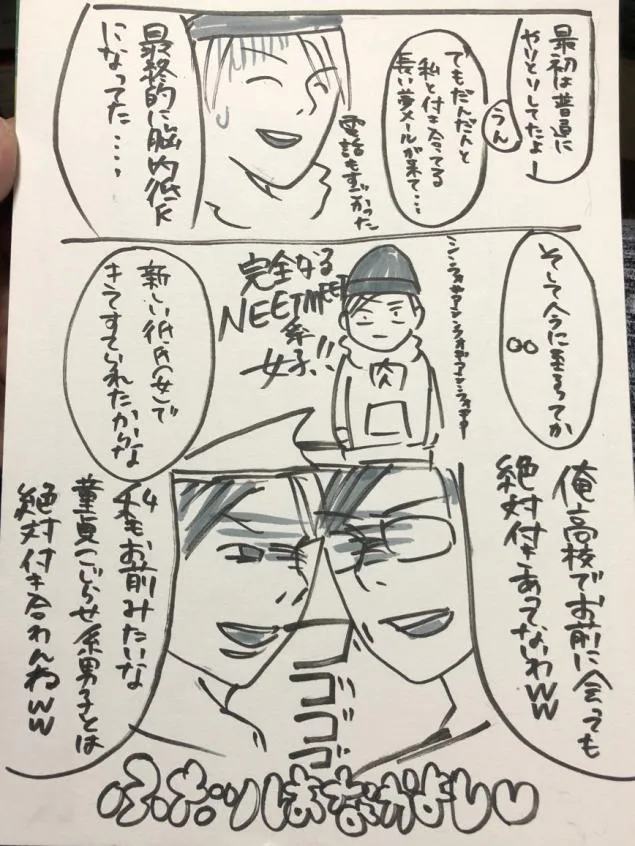 最初は普通に
やりとりしてたよー
うん
でもだんだんと
私と付き合ってる
長い夢メールが来て…
電話もすごかった
最終的に脳内彼氏
になってた….
そして今に至るってか
シンフォギアーシンフォギアーシンフォギアー
完全なる
NEET
系
女子!!
肉
新しい彼氏(女)で
きてすていれたからな
俺高校でお前に会っても
絶対付きあってないわww
私もお前みたいな
童貞こじらせ系男子とは
絶対付き合わんわww
ゴゴゴゴ
ふたりはなかよし